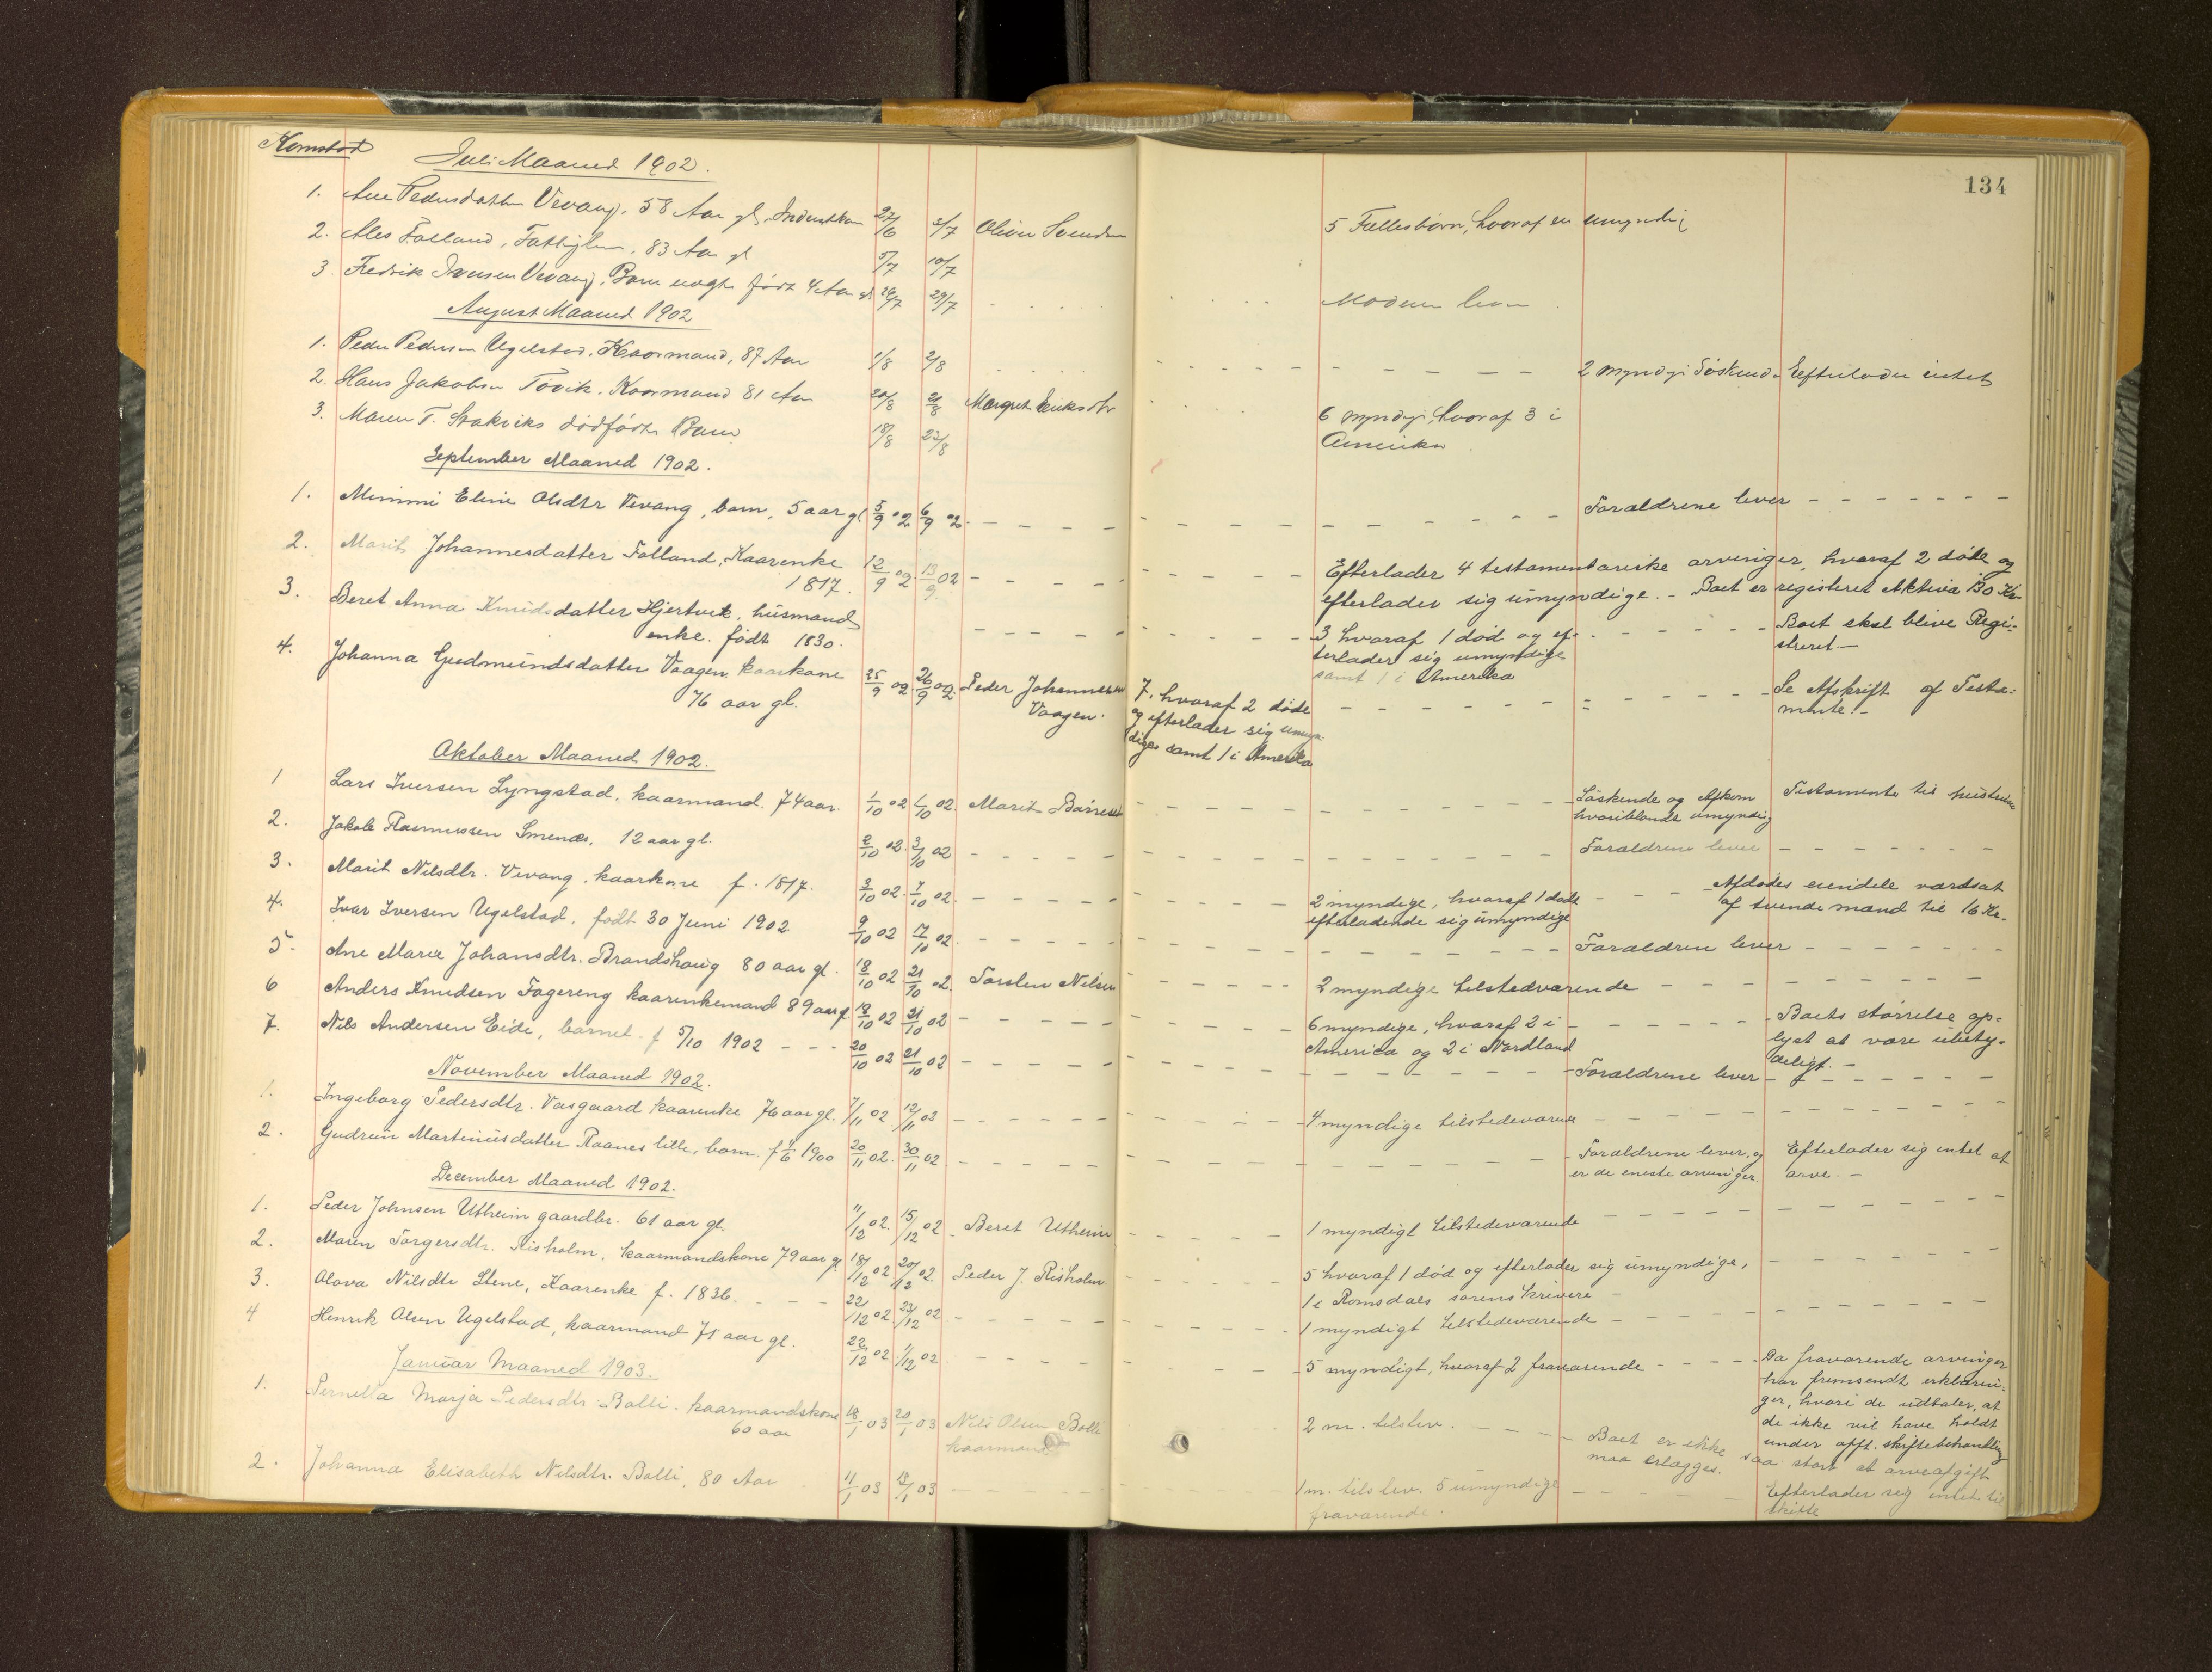 Kornstad
134
Juli Maaned 1902.
1. Ane Pedersdatter Vevang, 58 Aar gl. Inderstkone 27/6 3/7 Oliver Svendsen 5 Fællesbørn, hvoraf en umyndig
2. Ales Folland, Fattiglem, 83 Aar gl 5/7 10/7
3. Fredrik Iversen Vevang, Barn 4 Aar gl 29/7 Moderen lever
August Maaned 1902
1. Peder Pedersen Ugelstad, Kaarmand, 87 Aar 1/8 2/8 2 myndige Søskende Efterlader intet
2. Hans Jakobsen Tøvik, Kaarmand 81 Aar 20/8 21/8 Margret Eriksdtr 6 myndige, hvoraf 3 i
Amerika
3. Maren T. Stokviks dødfødte Barn 18/8 23/8
September Maaned 1902.
1. Mimmi Eline Olsdtr Vevang, barn, 5 aar gl 5/9 02 6/9 02. Forældrene lever
2. Marit Johannesdatter Folland, Kaarenke 12/9 02. 13/9 02 Efterlader 4 testamentariske arvinger, hvoraf 2 døde og
1817. efterlader sig umyndige. - Boet er registeret Aktiva 130 Kr.
3. Beret Anna Knudsdatter Hjertvik, husmands 3 hvoraf 1 død og ef- Boet skal blive Regi-
enke. født 1830. terlader sig umyndige streret.-
samt 1 i Amerika
4. Johanna Gudmundsdatter Vaagen. kaarkone 25/9 02. 26/9 02. Peder Johannesen 7. hvoraf 2 døde Se Afskrift af Testa-
76 aar gl. Vaagen. og efterlader sig umyn- mente.-
dige samt 1 i Amerika
Oktober Maaned 1902.
1 Lars Iversen Lyngstad. kaarmand. 74 aar. 1/10 02 6/10 02. Marit Baarset Søskende og Afkom Testamente til hustruen
hvoriblandt umyndig
2. Jakob Rasmussen Smenes, 12 aar gl. 2/10 02. 3/10 02 Forældrene lever
3. Marit Nilsdtr. Vevang, kaarkone f. 1817. 3/10 02. 7/10 02. 2 myndige, hvoraf 1 død Afdødes eiendele værdsat
efterladende sig umyndige af tvende mænd til 16 Kr.
4. Ivar Iversen Ugelstad. født 30 Juni 1902 9/10 02 17/10 02. Forældren lever
5. Ane Marie Johansdtr. Brandshaug 80 aar gl. 18/10 02 21/10 02. Torsten Nilsen 2 myndige tilstedværende
6 Anders Knudsen Fagereng kaarenkemand 89 aar gl 18/10 02 21/10 02 6 myndige, hvoraf 2 i Boets størrelse op-
America og 2 i Nordland lyst at være ubety-
deligt.-
7. Nils Andersen Eide, barnet f 5/10 1902 20/10 02 21/10 02 Forældrene lever
November Maaned 1902.
1. Ingeborg Pedersdtr. Vasgaard kaarenke 76 aar gl. 7/11 02 12/11 02 4 myndige tilstedeværende
2. Gudrun Martinusdatter Raanes lille, barn. f 1/6 1900 20/11 02. 30/11 02 Forældrene lever, og Efterlader sig intet at
er de eneste arvinger. arve.-
December Maaned 1902.
1. Peder Johnsen Utheim gaardbr. 61 aar gl. 11/12 02. 15/12 02 Beret Utheim 1 myndigt tilstedeværende
2. Maren Torgersdtr. Risholm, kaarmandskone 79 aar gl 18/12 02 20/12 02. Peder J. Risholm 5 hvoraf 1 død og efterlader sig umyndige,
1 i Romsdals sorenskriveri
3. Olava Nilsdtr Stene, Kaarenke f. 1836. 22/12 02 23/12 02 1 myndigt tilstedeværende
4 Henrik Olsen Ugelstad, kaarmand 71 aar gl. 22/12 02 1/12 02 5 myndigt, hvoraf 2 fraværende Da fraværende arvinger
har fremsendt erklærin-
ger, hvori de udtaler, at
de ikke vil have holdt
under offt. skiftebehandling
Januar Maaned 1903.
1. Pernella Marja Pedersdtr. Bolli. kaarmandskone 18/1 03 20/1 03 Nils Olsen Bolli 2 m. tilstev. Boet er ikke saa stort at arveafgift
60 aar kaarmand maa erlægges.
2. Johanna Elisabeth Nilsdtr. Bolli, 80 Aar 11/1 03 18/1 03 1 m. tilstev. 5 umyndige Efterlader sig intet til
fraværende. skifte